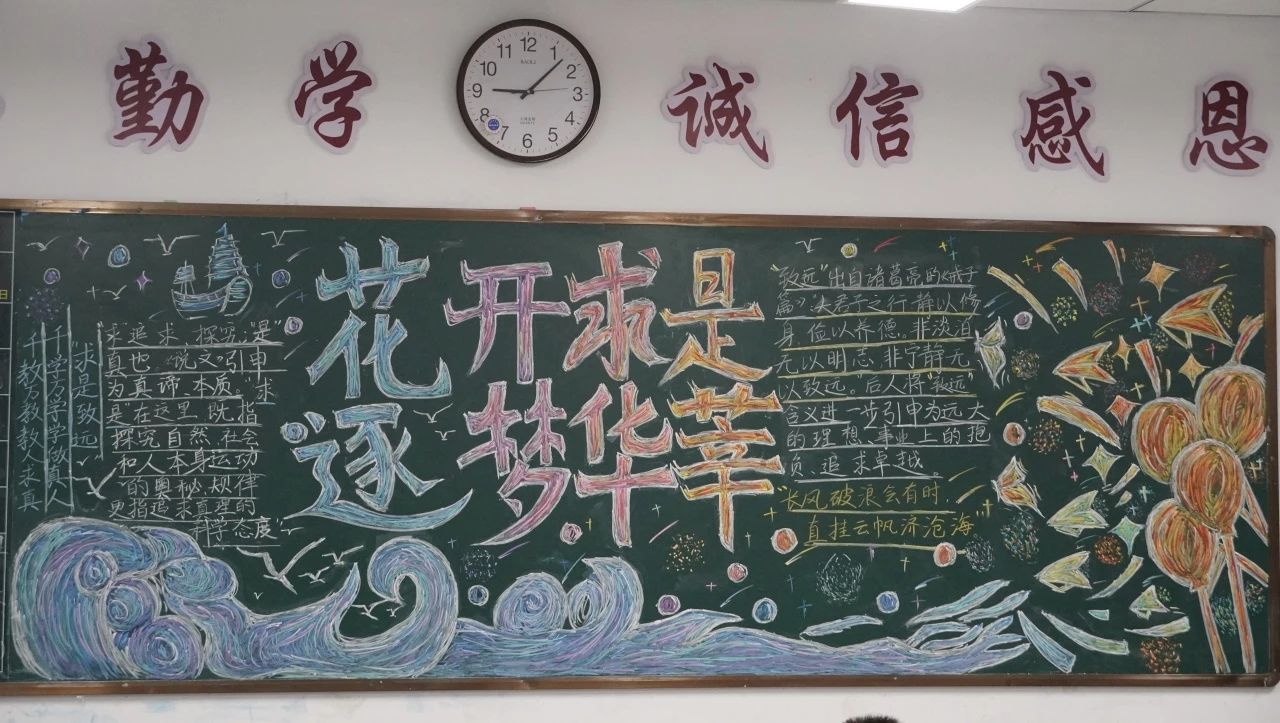 勤学 诚信感恩
11 12 1
10 2
9 3
8 4
7 6 5
花开求是
逐梦华莘
“求是致远
千学万学学做真人
千教万教教人求真
求追求、探究,“是”
真也,《说文》引申
为真谛、本质。“求
是”在这里既指
探究自然、社会
和人本身运动
的奥秘规律
更指追求真理的
科学态度”
“致远”出自诸葛亮的《诫子
篇》:“夫君子之行,静以修
身,俭以养德。非淡泊
无以明志,非宁静无
以致远。”后人将“致远”
含义进一步引申为远大
的理想、事业上的抱
负、追求卓越。
“长风破浪会有时,
直挂云帆济沧海”